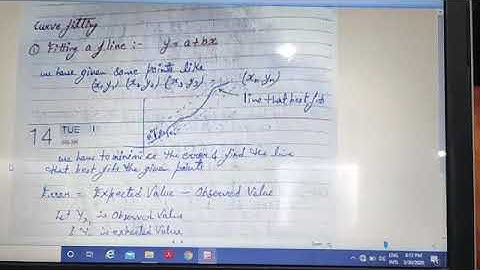 Curve fitting
① Fitting a line :- y = a+bx
we have given some points like
(x₁,y₁) (x₂,y₂) (x₃,y₃) (xₙ,yₙ)
line that best fits
14 TUE
we have to minimize the error & find the line
that best fits the given points
Error = Expected Value - Observed Value
Let Yₚ is Observed Value
& Y is expected Value
ENG 8:17 PM
INTL